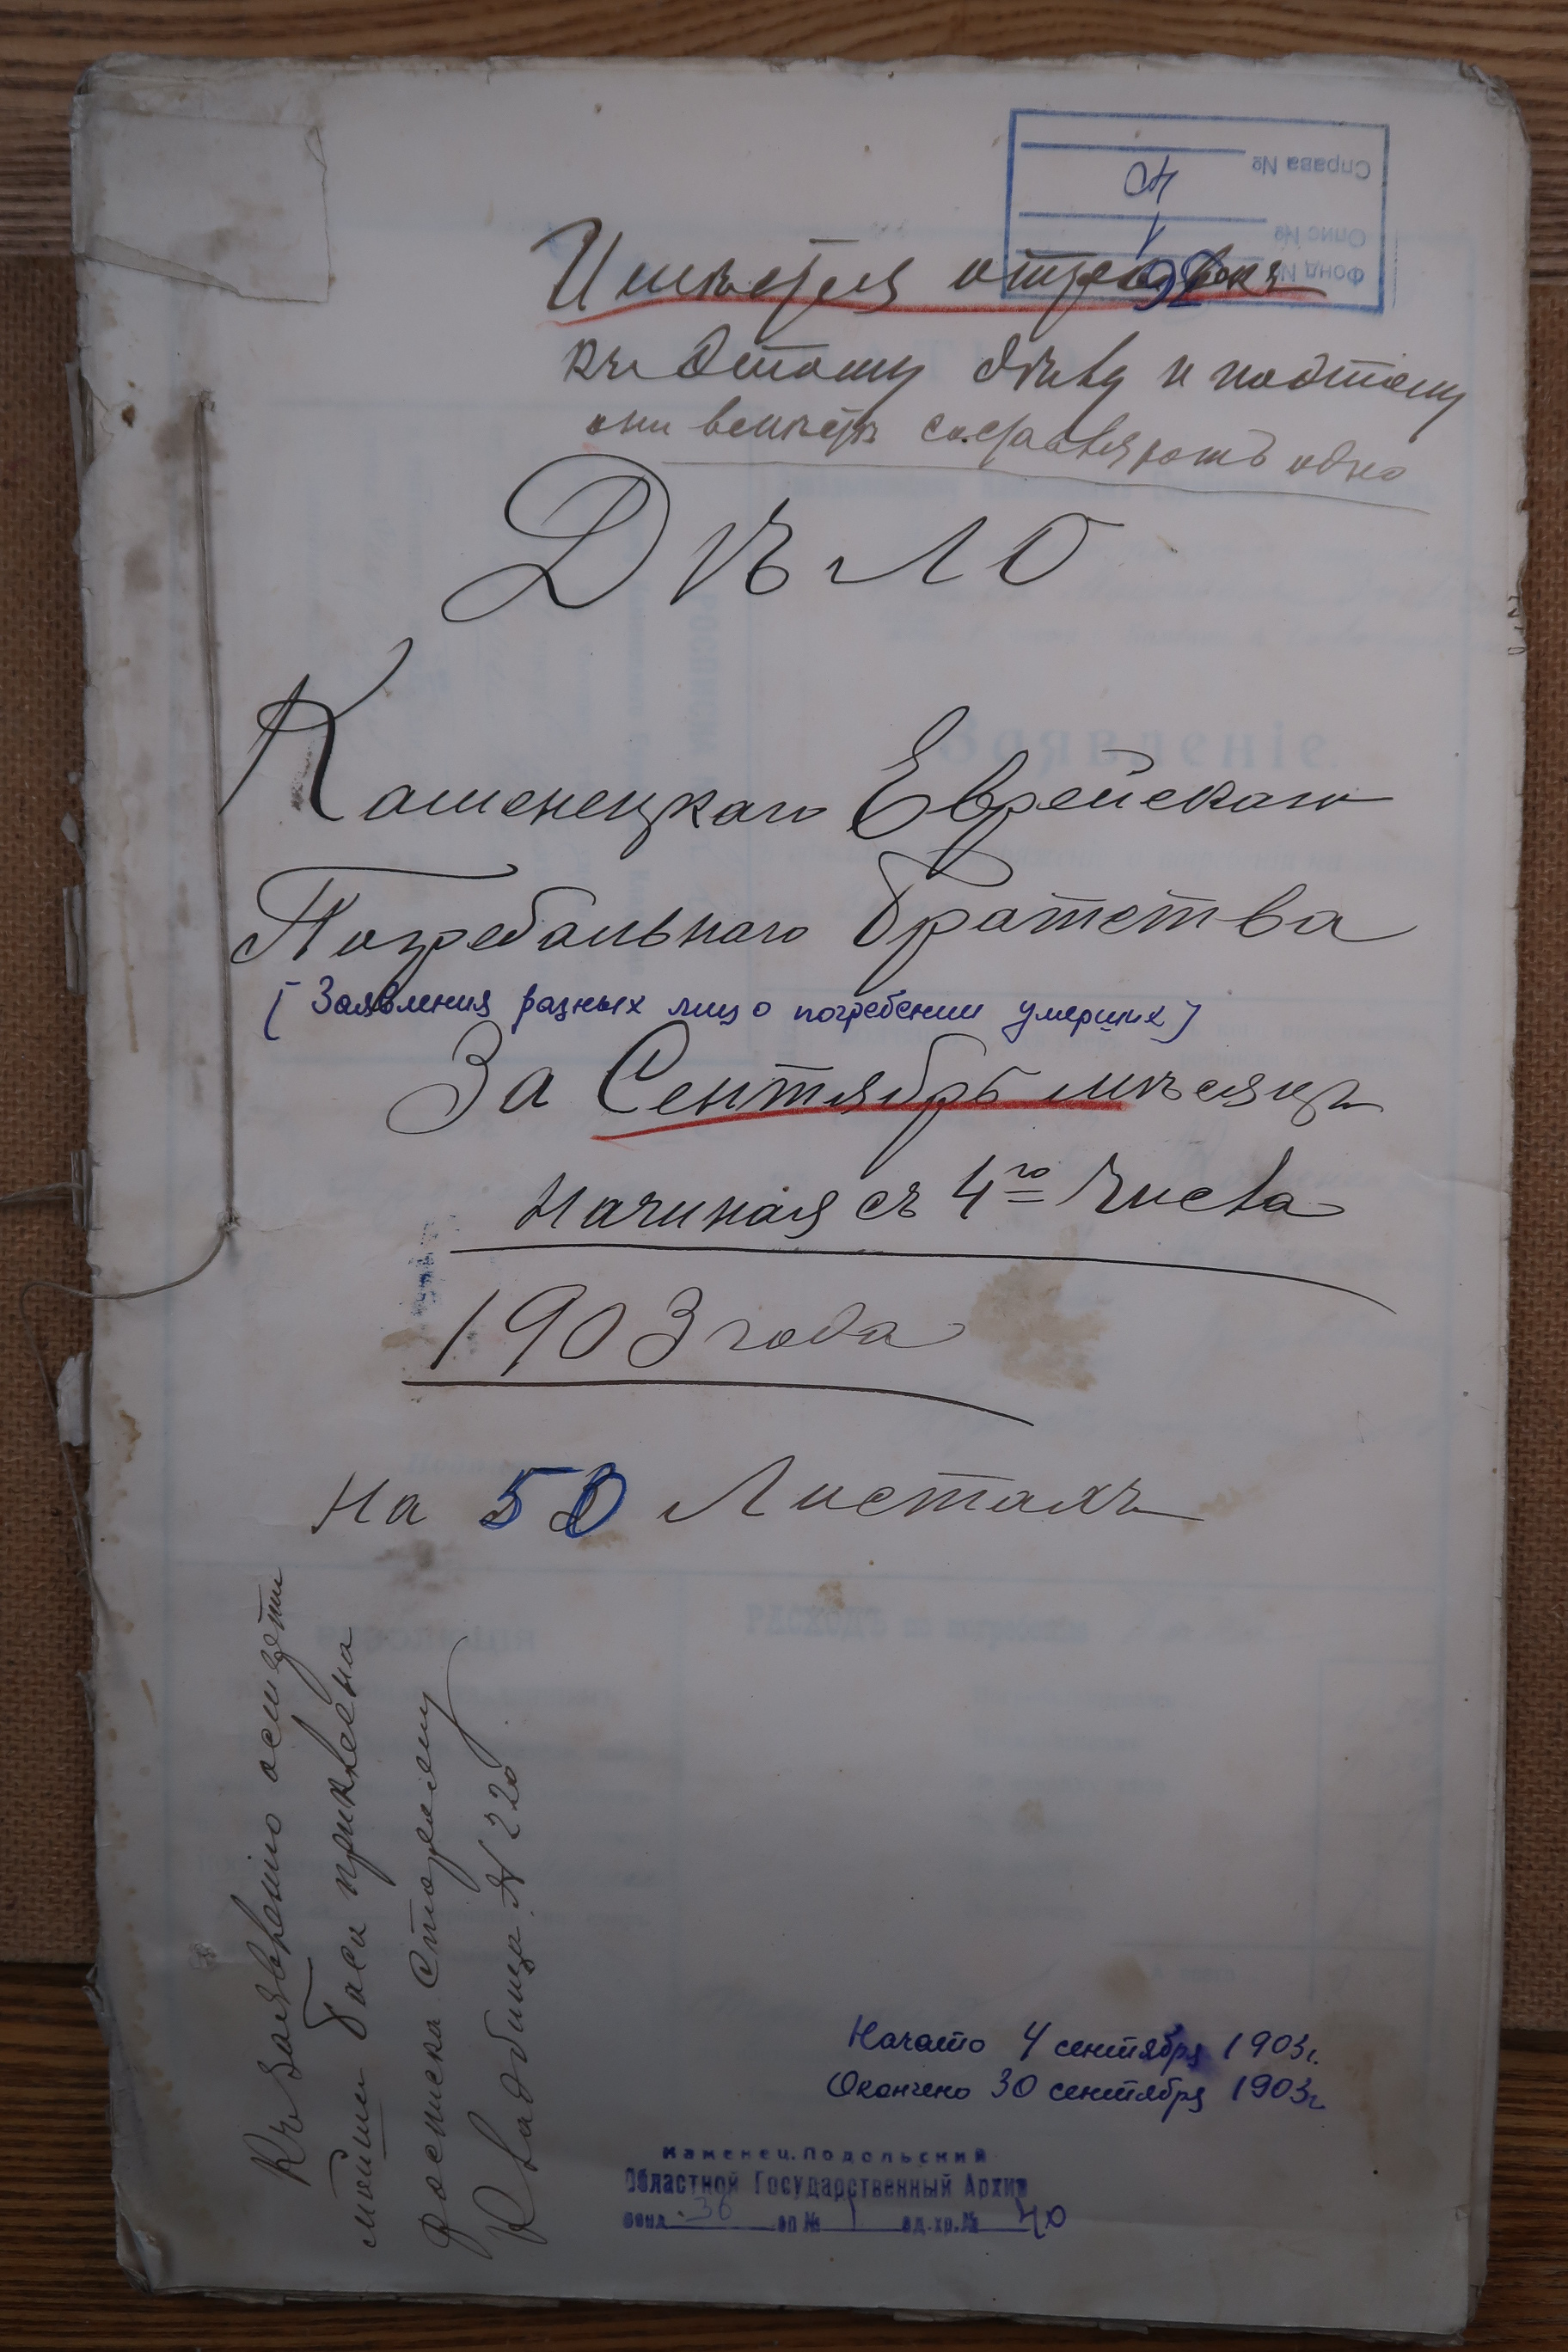 Справа №
Опис №
Фонд №
Имеется
къ этому дѣлу и поэтому
они вмѣстѣ составляютъ одно
Дѣло
Каменецкаго Еврейскаго
Погребальнаго Братства
[Заявления разных лиц о погребении умерших]
За Сентябрь мѣсяцъ
Начиная съ 4го Числа
1903 года
На 50 Листахъ
Къ заявленію о смерти
Баси приклеена
росписка Сторожу
Кладбища № 220
Начато 4 сентября 1903г.
Окончено 30 сентября 1903г.
Каменец.Подольский
Областной Государственный Архив
Фонд 36 оп № 1 ед.хр.№ 40